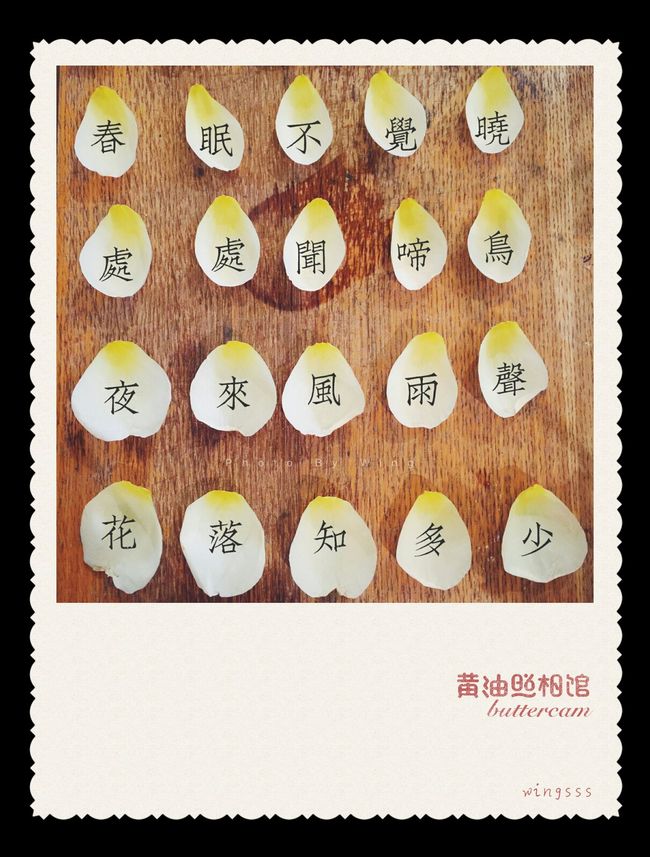 春眠不覺曉
處處聞啼鳥
夜來風雨聲
Photo By Wing
花落知多少
黄油照相馆
buttercam
wingsss